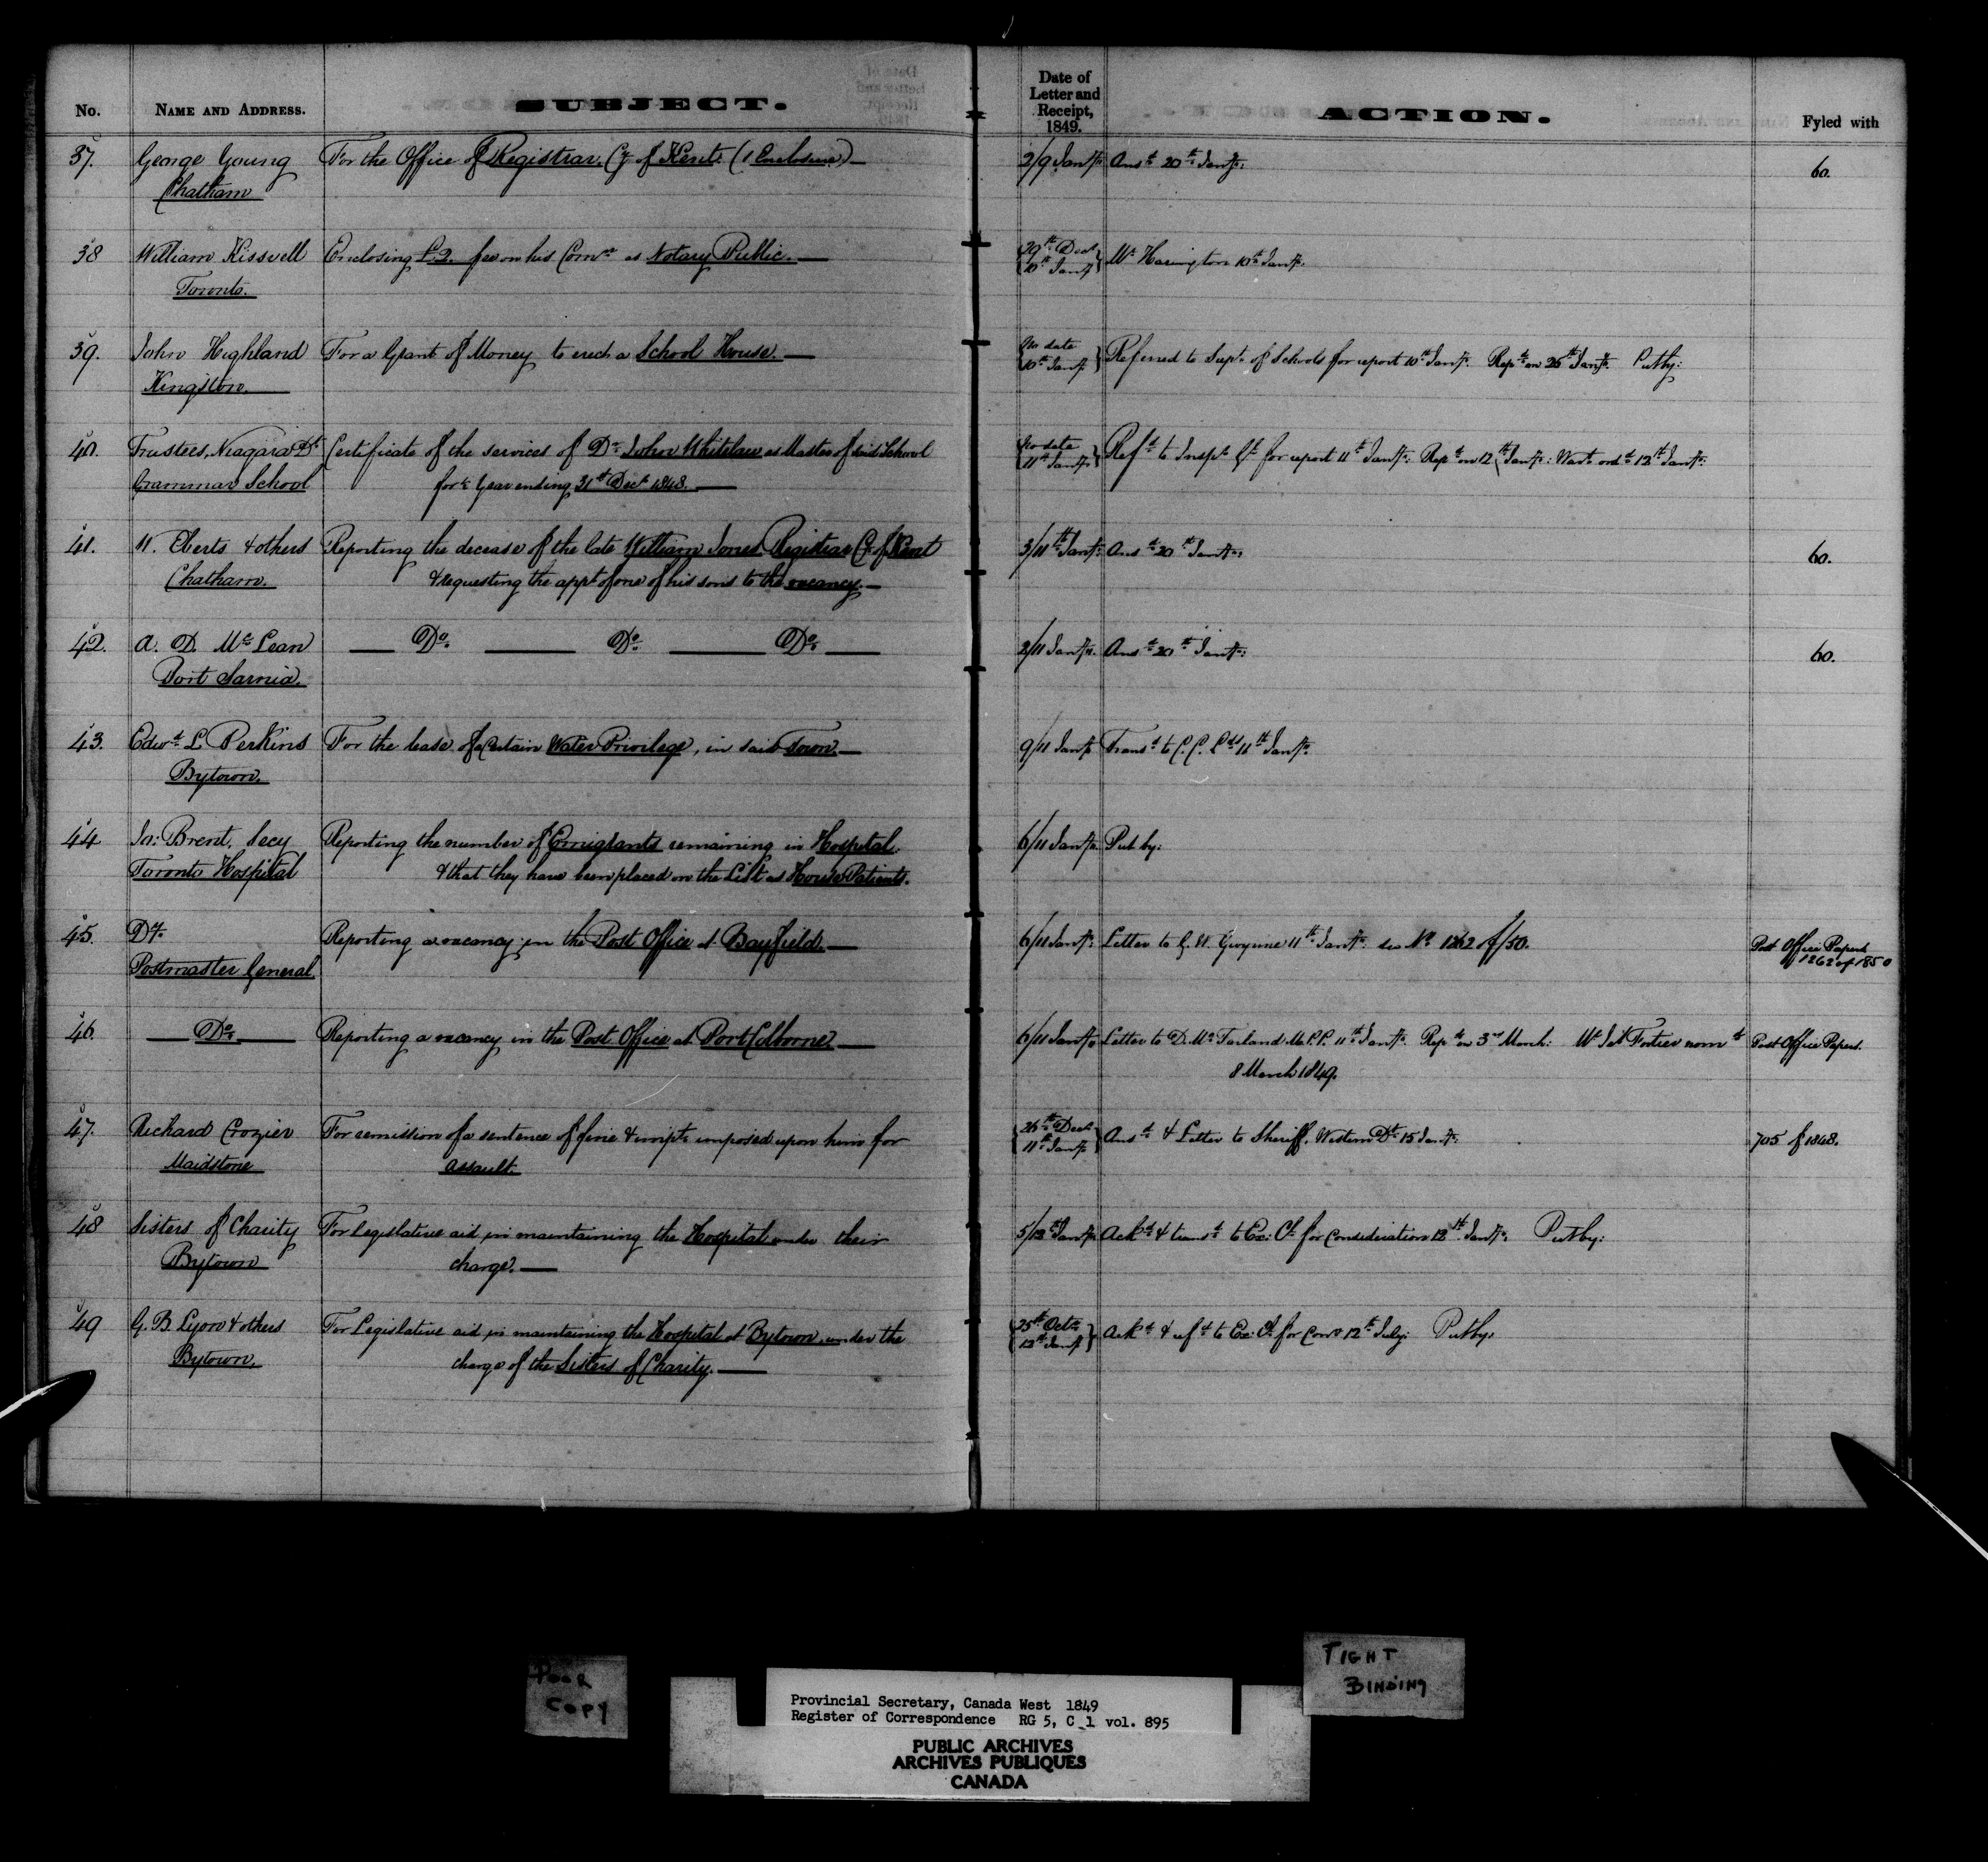 No. NAME AND ADDRESS. SUBJECT. Date of Letter and Receipt, 1849. ACTION. Fyled with
37. George Young For the Office of Registrar, Cy of Kent. (1 Enclosure) 2/9 Jany. Ansd 20th Jany: 60.
Chatham
38 William Kissvell Enclosing £2. fee on his Comn as Notary Public. 29th Decr Mr Harington 10th Jany.
Toronto. 10th Jany
39. John Highland For a Grant of Money to erect a School House. No date Referred to Supt. of Schools for report 10th Jany. Repd on 26th Jany. Put by:
Kingston. 10th Jany
40. Trustees, Niagara Dt Certificate of the services of Dr John Whitelaw as Master of said School No date Refd to Inspr Gl for report 11th Jany: Repd on 12th Jany: Wart ord 12th Jany:
Grammar School for ½ Year ending 31st Decr 1848. 11th Jany
41. W. Eberts & others Reporting the decease of the late William Jones Registrar Cy of Kent 3/11th Jany: Ansd 20th Jany: 60.
Chatham. & requesting the appt of one of his sons to the vacancy.
42. A. D. McLean Do. Do. Do. 2/11 Jany. Ansd 20th Jany: 60.
Port Sarnia.
43. Edwd L. Perkins For the lease of a Certain Water Privilege, in said Town. 9/11 Jany Transd to C. C. Lds 11th Jany.
Bytown.
44 Js: Brent, Secy Reporting the number of Emigrants remaining in Hospital. 6/11 Jany. Put by:
Toronto Hospital & that they have been placed on the List as House Patients.
45. Dy. Reporting a vacancy in the Post Office at Bayfield. 6/11 Jany. Letter to G. W. Gwynne 11th Jany. see No. 1262 of /50. Post Office Papers
Postmaster General. 1262 of 1850
46. Do. Reporting a vacancy in the Post Office at Port Colborne 6/11 Jany Letter to D. McFarland M.P.P. 11th Jany. Repd on 3rd March: Mr Fortier nomd Post Office Papers.
8 March 1849.
47. Richard Crozier For remission of a sentence of fine & impt. imposed upon him for 26th Decr Ansd & Letter to Sheriff, Western Dt. 15 Jany: 705 of 1848.
Maidstone assault. 11th Jany
48 Sisters of Charity For Legislative aid in maintaining the Hospital under their 5/12th Jany Ackd & transd to Ex: Cl for consideration 12th Jany. Put by:
Bytown charge.
49 G. B. Lyon & others For Legislative aid in maintaining the Hospital at Bytown, under the 25th Octr Ackd & refd to Ex: Cl. for Conn 12th July: Put by.
Bytown. charge of the Sisters of Charity. 12th Jany
POOR
COPY
TIGHT
BINDING
Provincial Secretary, Canada West 1849
Register of Correspondence RG 5, C 1 vol. 895
PUBLIC ARCHIVES
ARCHIVES PUBLIQUES
CANADA